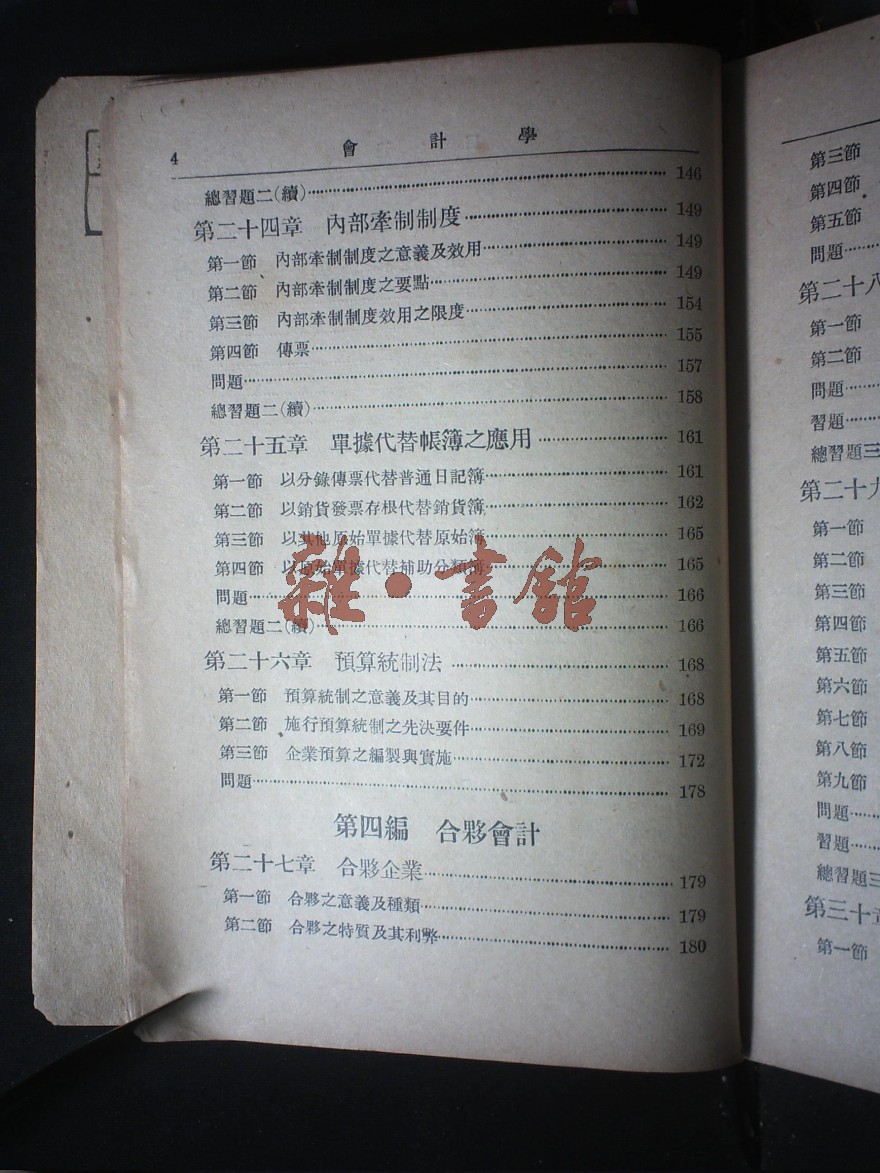 4 會計學
總習題二(續)……146
第二十四章 內部牽制制度……149
第一節 內部牽制制度之意義及效用……149
第二節 內部牽制制度之要點……149
第三節 內部牽制制度效用之限度……154
第四節 傳票……155
問題……157
總習題二(續)……158
第二十五章 單據代替帳簿之應用……161
第一節 以分錄傳票代替普通日記簿……161
第二節 以銷貨發票存根代替銷貨簿……162
第三節 以其他原始單據代替原始簿……165
第四節 以原始單據代替補助分類簿……165
問題……166
總習題二(續)……166
第二十六章 預算統制法……168
第一節 預算統制之意義及其目的……168
第二節 施行預算統制之先決要件……169
第三節 企業預算之編製與實施……172
問題……178
第四編 合夥會計
第二十七章 合夥企業……179
第一節 合夥之意義及種類……179
第二節 合夥之特質及其利弊……180
雜·書館
第三節
第四節
第五節
問題……
第二十八
第一節
第二節
問題……
習題……
總習題三
第二十九
第一節
第二節
第三節
第四節
第五節
第六節
第七節
第八節
第九節
問題……
習題……
總習題三
第三十章
第一節